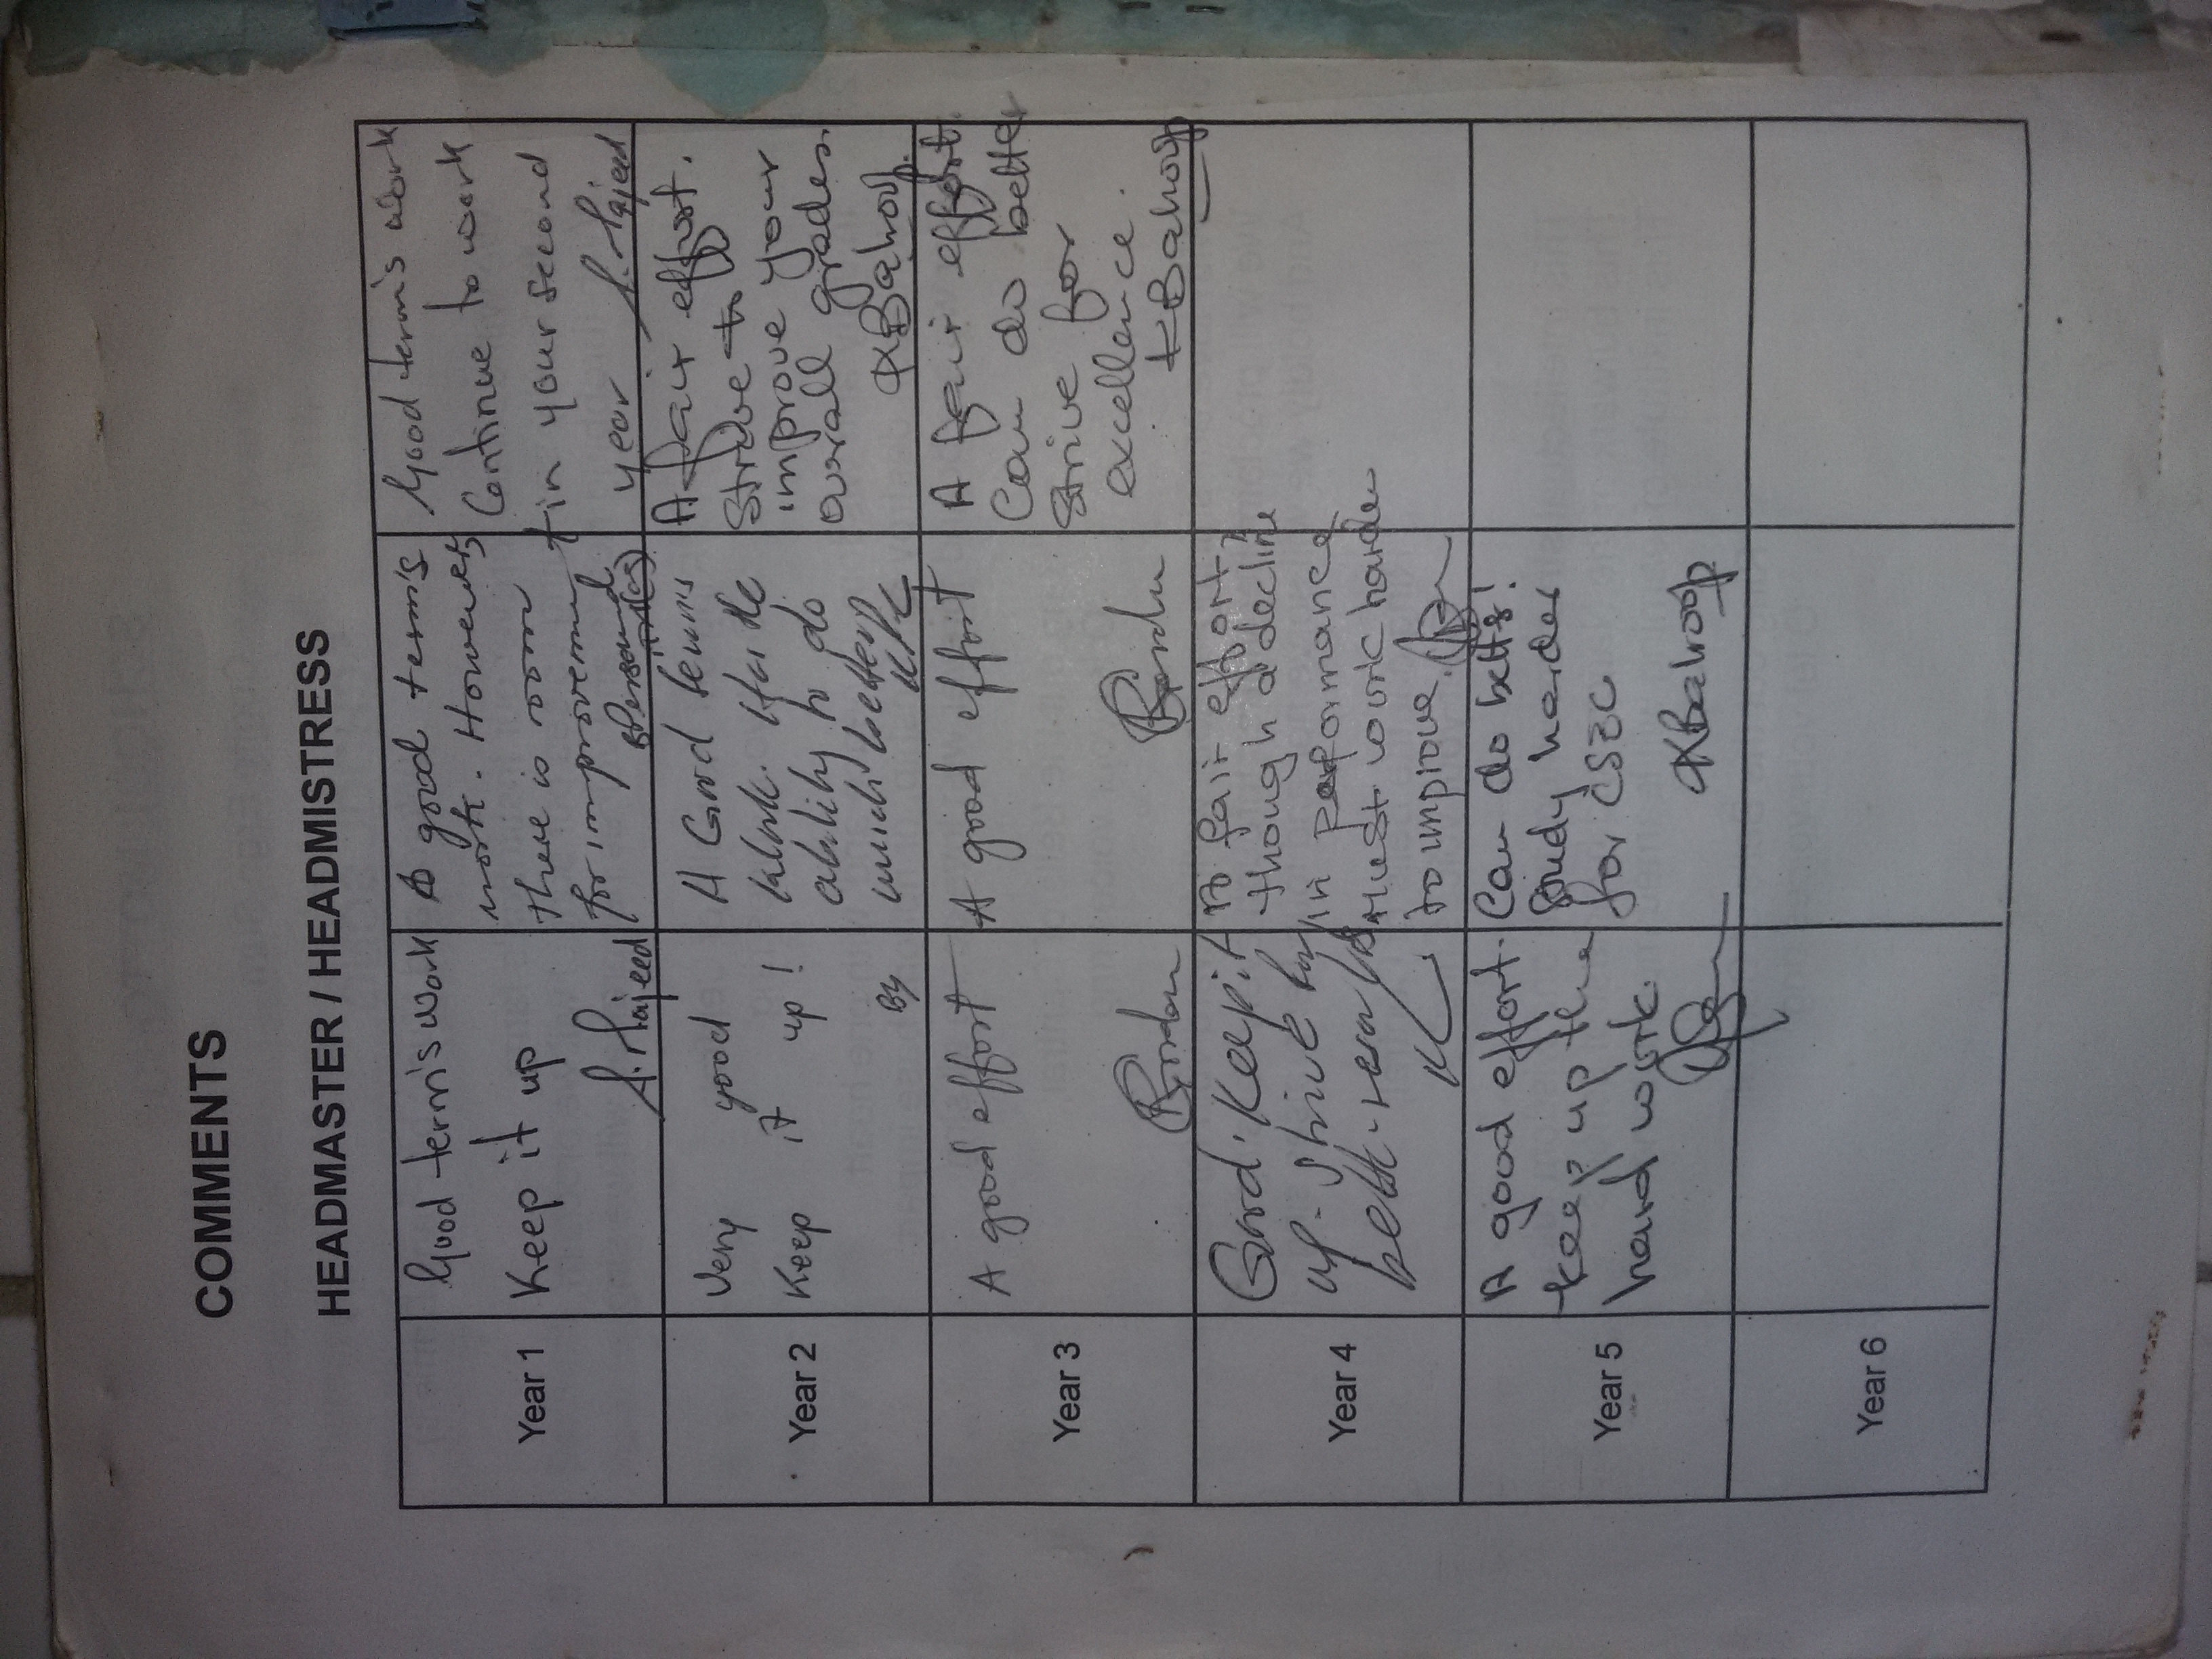 COMMENTS
HEADMASTER / HEADMISTRESS
Year 1
Good term's work
Keep it up
S. Majeed
A good term's
work. However,
there is room
for improvement
Good term's work
Continue to work
in your second
year S. Majeed
Year 2
Very good
Keep it up!
By
A Good term's
Work. Has the
ability to do
much better
A fair effort.
Strive to
improve your
overall grades.
KBahoop.
Year 3
A good effort
A good effort
A fair effort.
Can do better
Strive for
excellence.
KBahoop
Year 4
Good. Keep it
up. Strive for
better results
A fair effort,
though a decline
in performance
Must work harder
to improve.
Year 5
A good effort.
Keep up the
hard work.
Can do better!
Study harder
for CSEC
KBahoop
Year 6